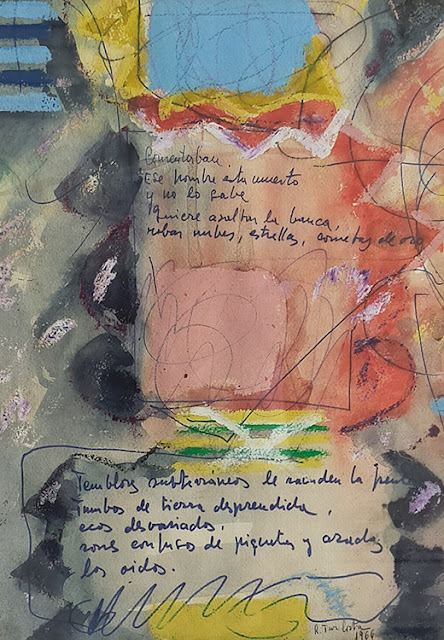 Comentaban
Ese hombre está muerto
y no lo sabe
Quiere asaltar la banca,
robar nubes, estrellas, cometas de oro
Temblores subterráneos le sacuden la frente
Tumbos de tierra desprendida,
ecos desvariados,
sones confusos de piquetas y azadas
los oidos.
R. Tur Costa